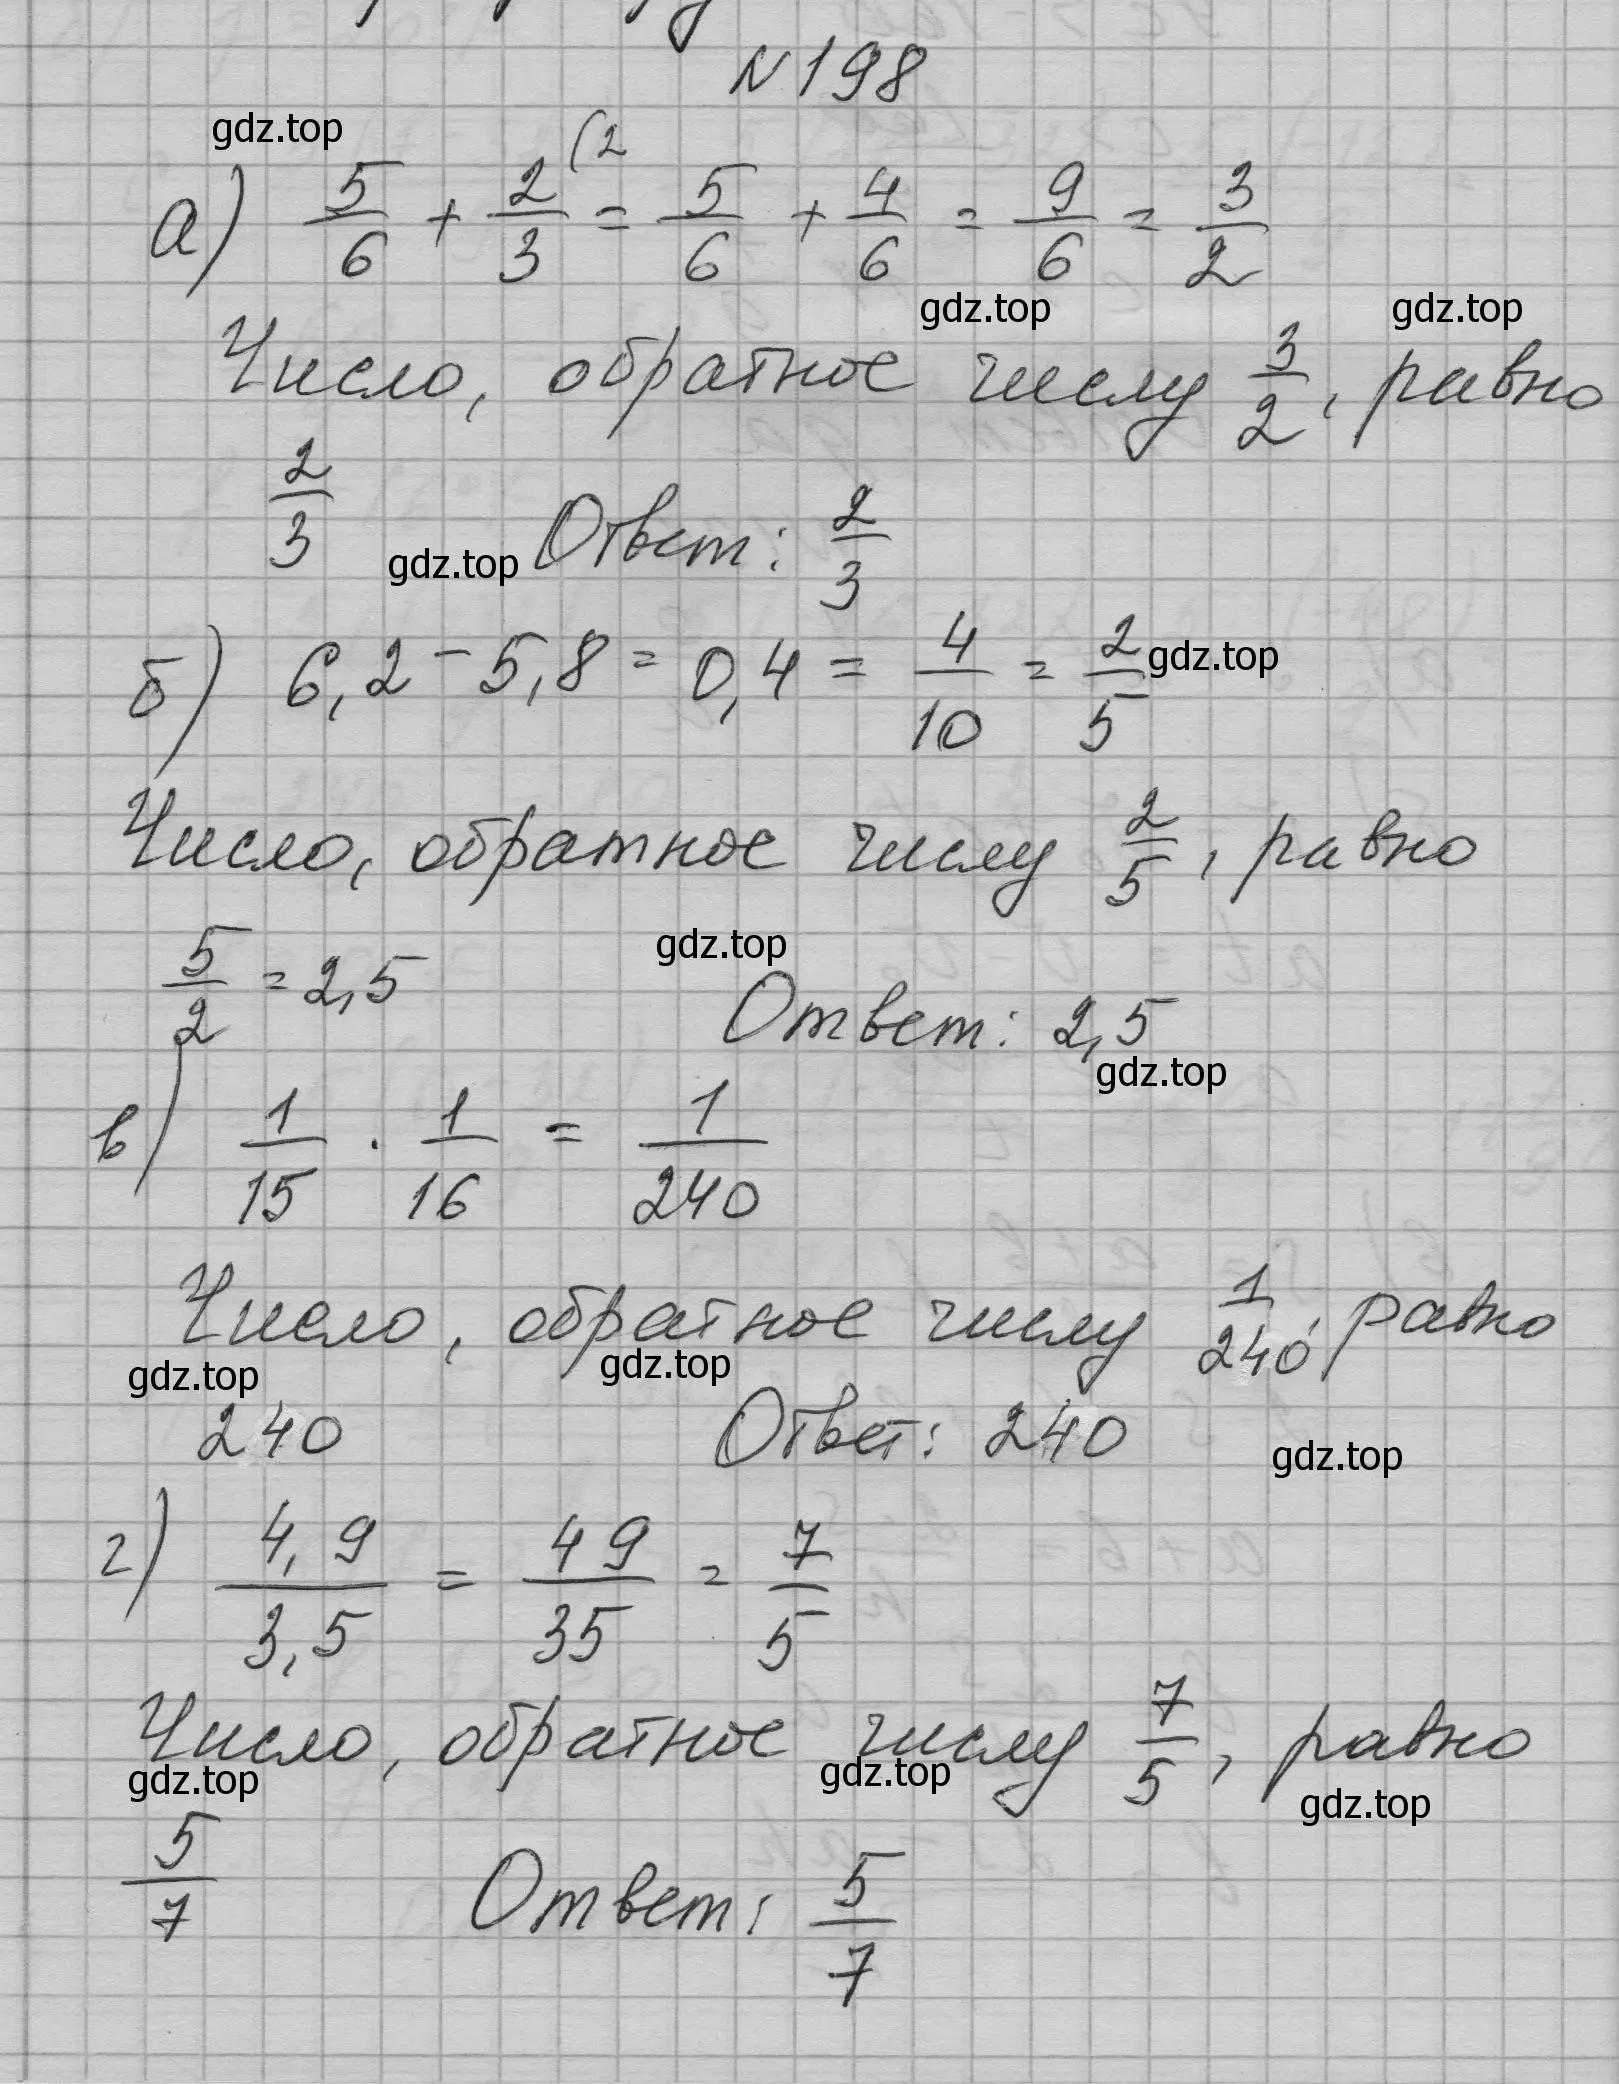 N198
gdz.top
а) 5/6 + 2/3 (2 = 5/6 + 4/6 = 9/6 = 3/2
gdz.top gdz.top
Число, обратное числу 3/2, равно
2/3 gdz.top Ответ: 2/3
б) 6,2 - 5,8 = 0,4 = 4/10 = 2/5 gdz.top
Число, обратное числу 2/5, равно
gdz.top
5/2 = 2,5 Ответ: 2,5
gdz.top
в) 1/15 · 1/16 = 1/240
Число, обратное числу 1/240, равно
gdz.top gdz.top
240 Ответ: 240
gdz.top
г) 4,9/3,5 = 49/35 = 7/5
Число, обратное числу 7/5, равно
gdz.top gdz.top gdz.top
5/7 Ответ: 5/7